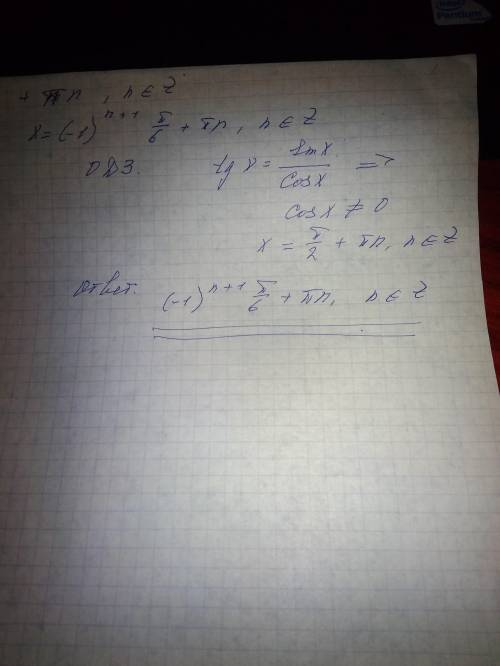 intel
Pentium
+ πn, n ∈ Z
x = (-1)^{n+1} π/6 + πn, n ∈ Z
ОДЗ. tg x = sinx/cosx =>
cosx ≠ 0
x = π/2 + πn, n ∈ Z
Ответ. (-1)^{n+1} π/6 + πn, n ∈ Z